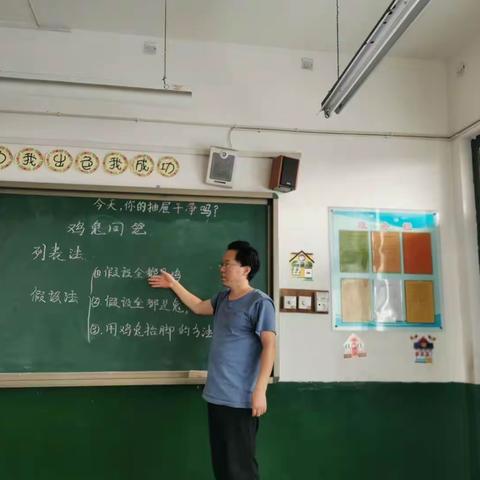 我出色我成功
今天，你的抽屉干净吗？
鸡兔同笼
列表法
假设法
①假设全都是鸡
②假设全都是兔，
③用鸡兔抬脚的方法